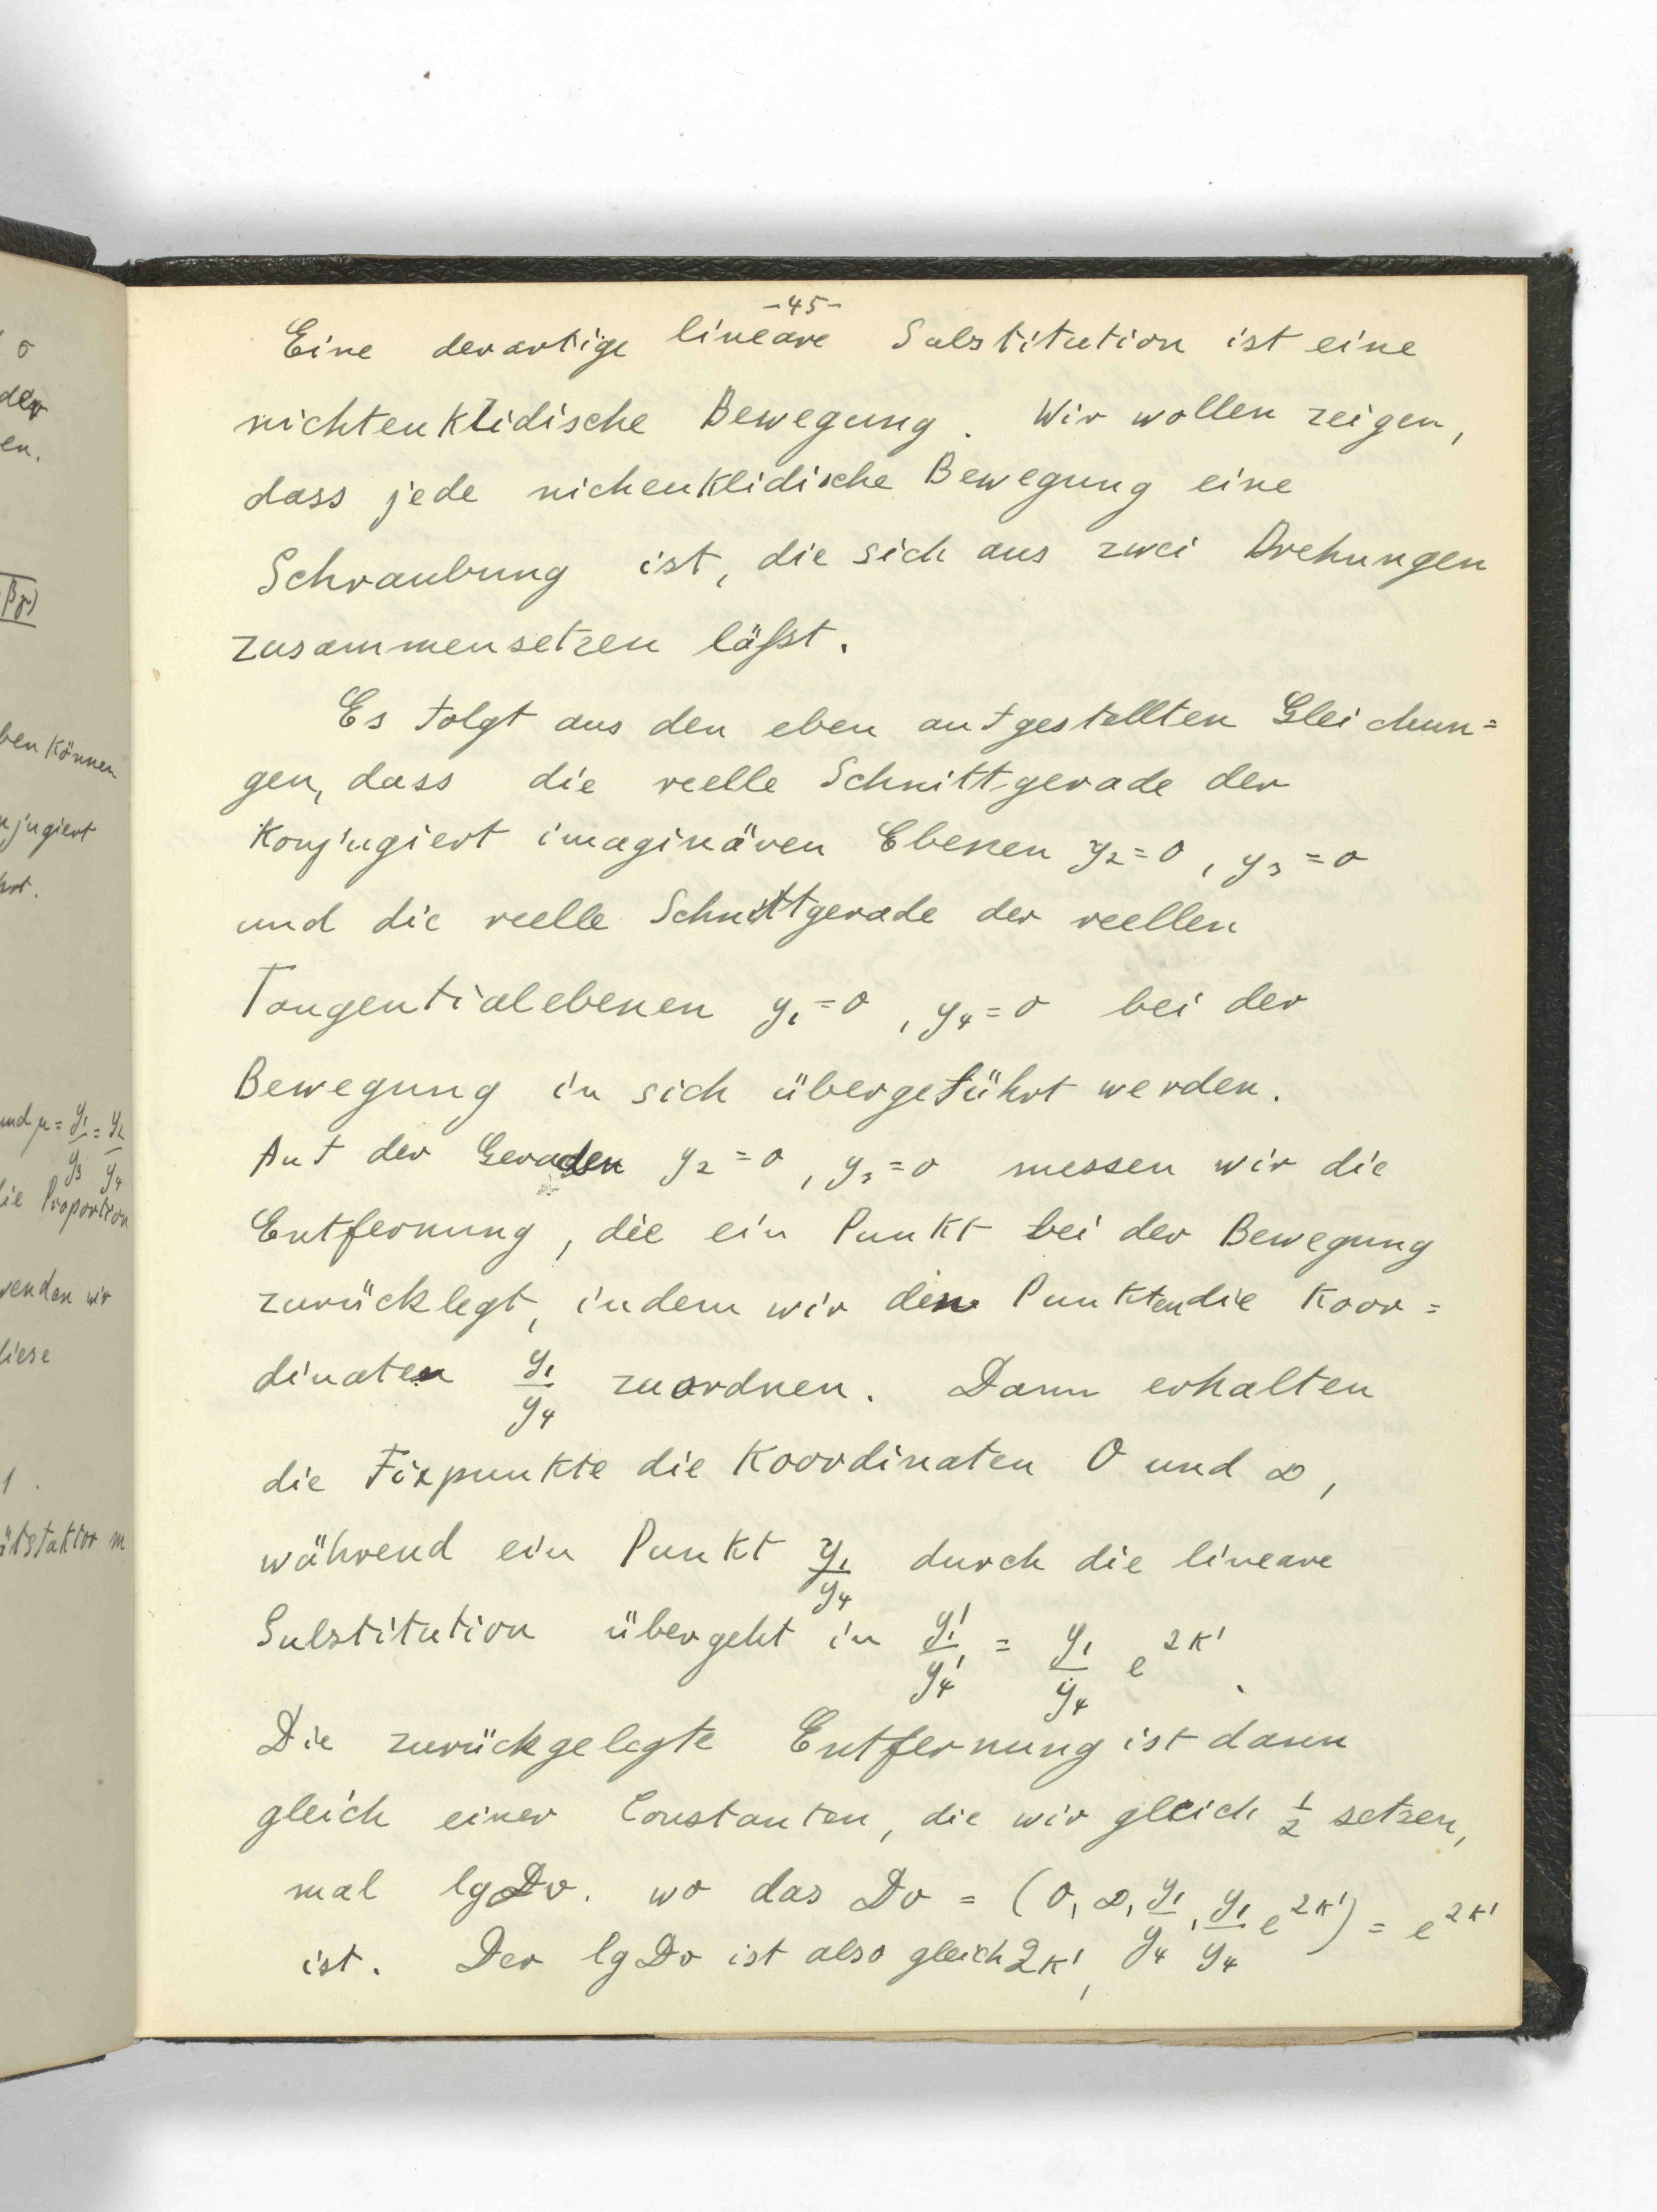 σ
der
en.
βγ)
ben können
njugiert
hrt.
und μ = y₁/y₃ = y₂/y₄
die Proportion
wenden wir
diese
1.
ätsfaktor m
-45-
Eine derartige lineare Substitution ist eine
nichteuklidische Bewegung. Wir wollen zeigen,
dass jede nicheuklidische Bewegung eine
Schraubung ist, die sich aus zwei Drehungen
zusammensetzen läßt.
Es folgt aus den eben aufgestellten Gleichun=
gen, dass die reelle Schnittgerade der
konjugiert imaginären Ebenen y₂=0, y₃=0
und die reelle Schnittgerade der reellen
Tangentialebenen y₁=0, y₄=0 bei der
Bewegung in sich übergeführt werden.
Auf der Geraden y₂=0, y₃=0 messen wir die
Entfernung, die ein Punkt bei der Bewegung
zurücklegt, indem wir den Punkten die Koor=
dinaten y₁/y₄ zuordnen. Dann erhalten
die Fixpunkte die Koordinaten 0 und ∞,
während ein Punkt y₁/y₄ durch die lineare
Substitution übergeht in y₁'/y₄' = y₁/y₄ e^{2κ'}.
Die zurückgelegte Entfernung ist dann
gleich einer Constanten, die wir gleich 1/2 setzen,
mal lg Dv. wo das Dv = (0, ∞, y₁/y₄, y₁/y₄ e^{2κ'}) = e^{2κ'}
ist. Der lg Dv ist also gleich 2κ',